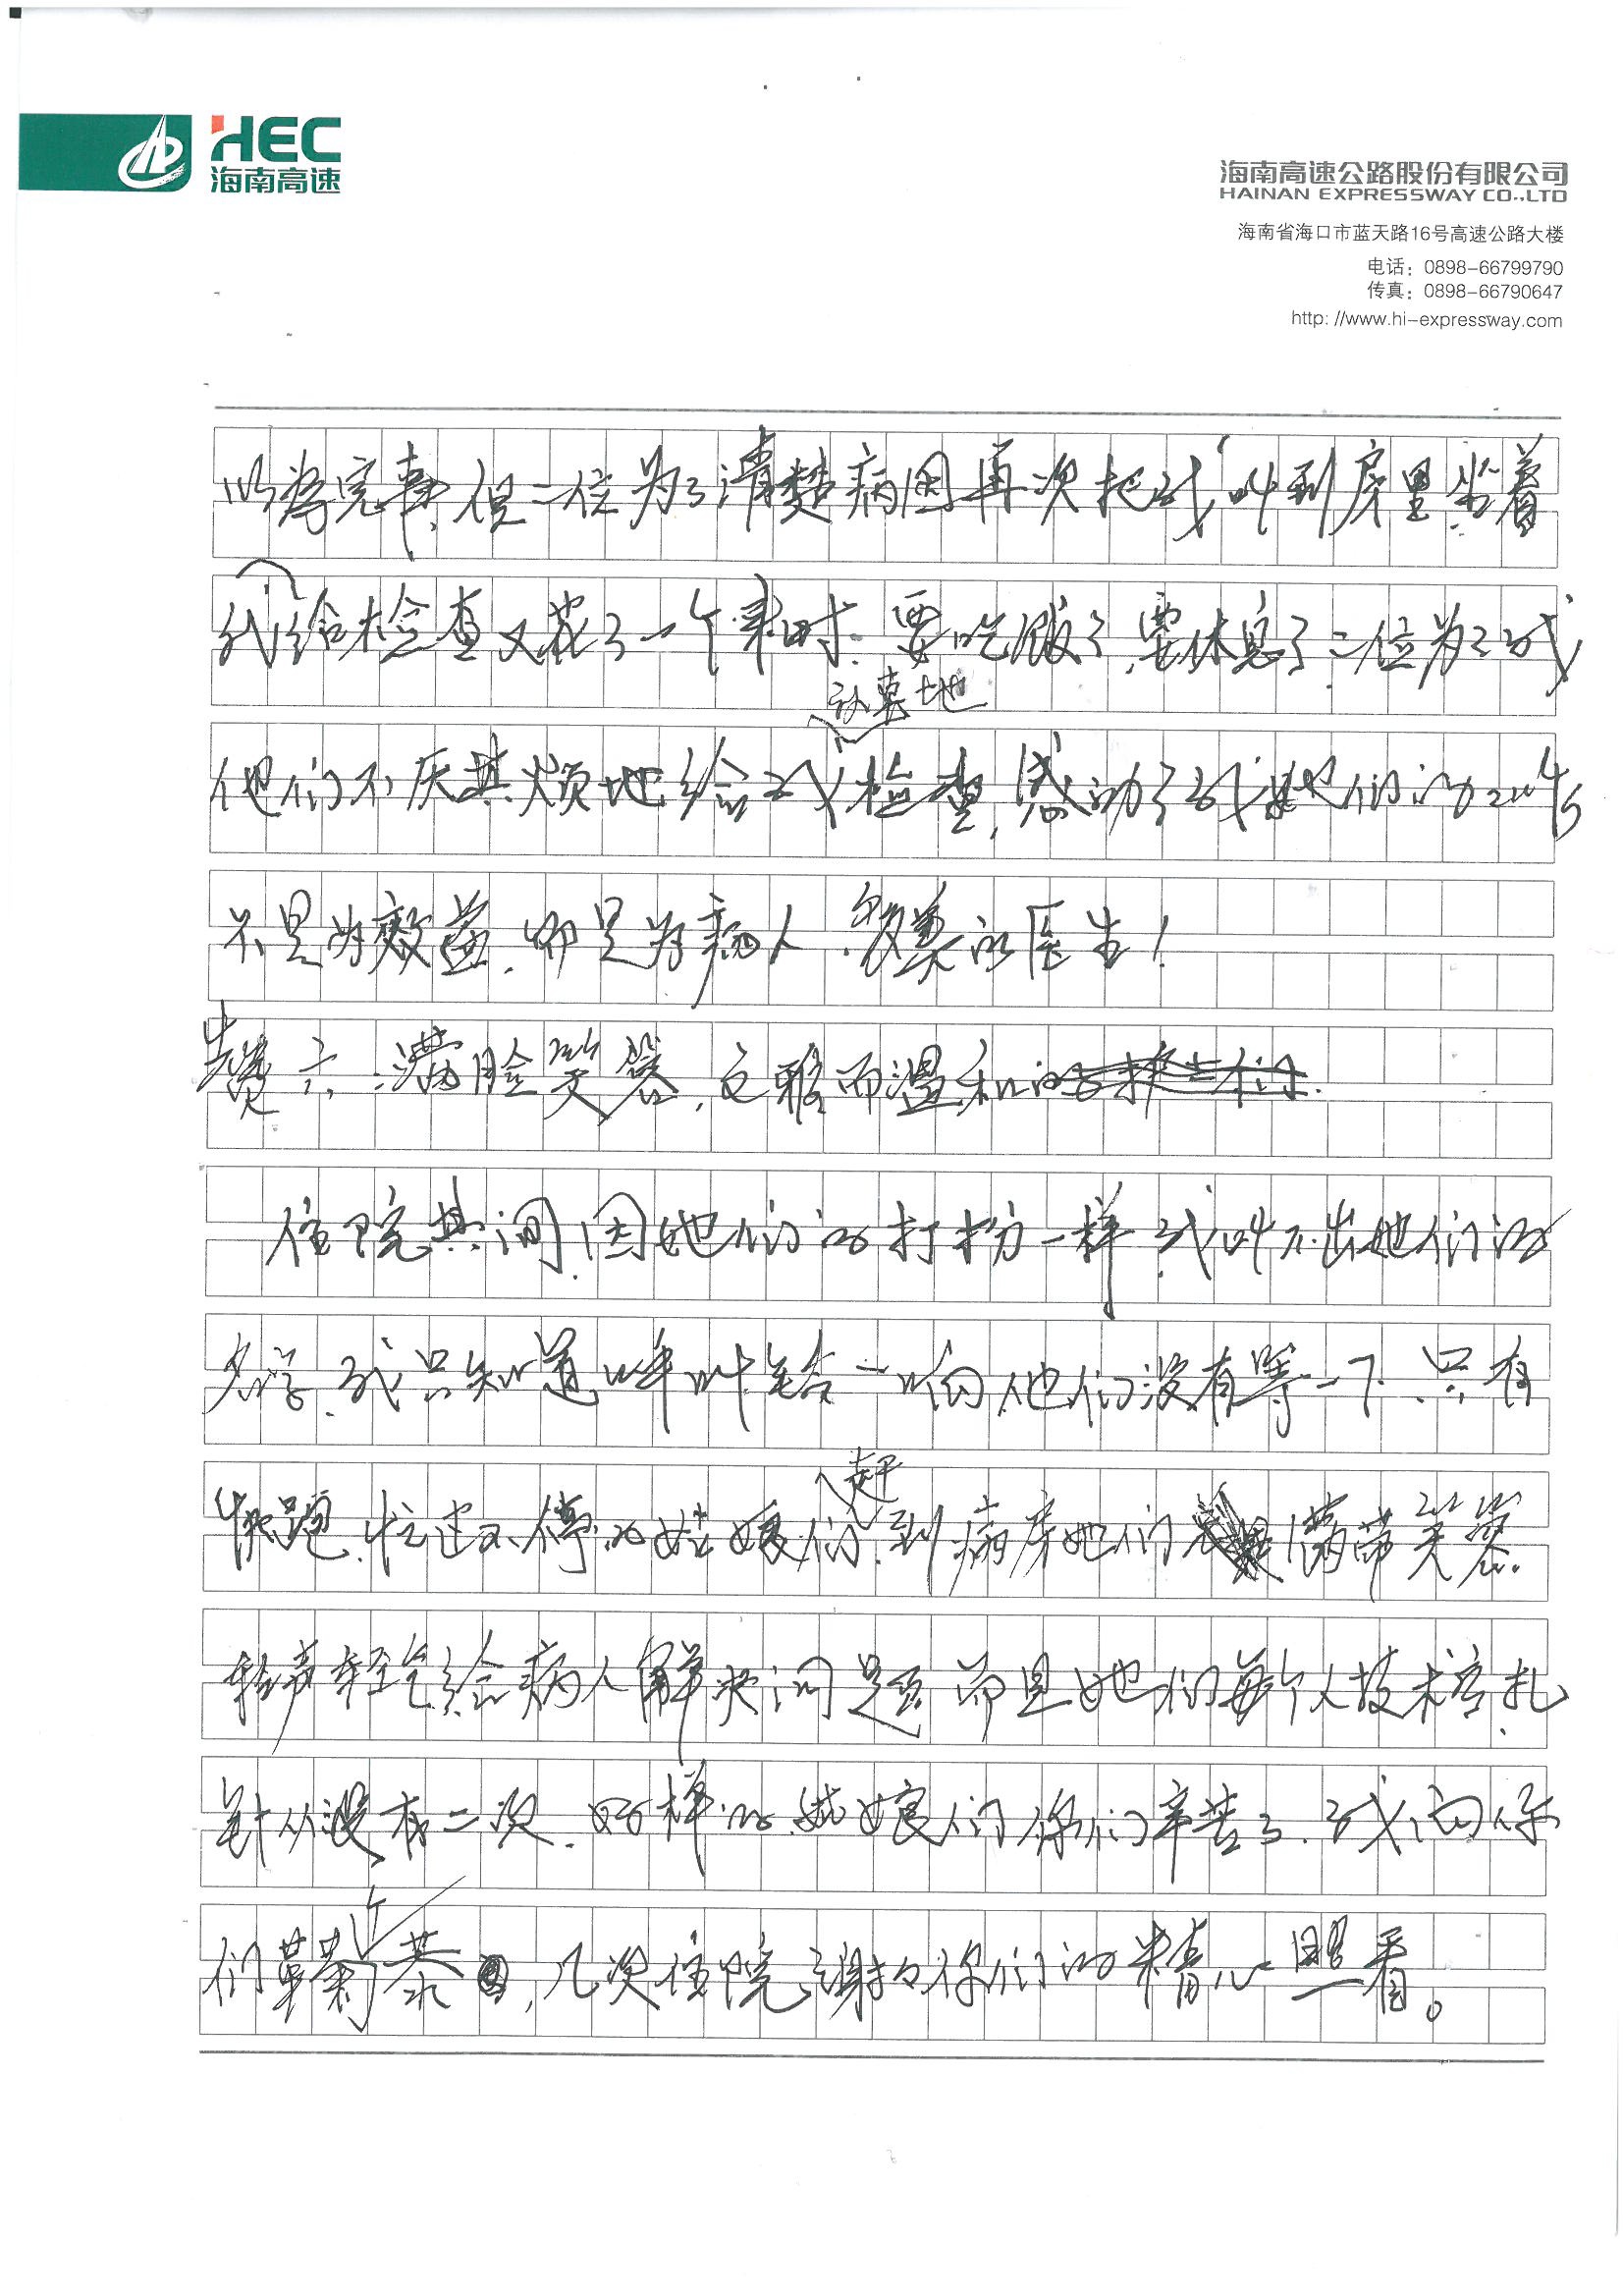 HEC
海南高速
海南高速公路股份有限公司
HAINAN EXPRESSWAY CO.,LTD
海南省海口市蓝天路16号高速公路大楼
电话：0898-66799790
传真：0898-66790647
http://www.hi-expressway.com
以为完事,但二位为了清楚病因再次把我叫到房里坐着
给我检查又花了一个来时.要吃饭了,要休息了.二位为了我
他们不厌其烦地给我认真地检查,感动了我,她们的工作
不是为效益,而是为病人.最美的医生!
先赞六:满脸笑容,文雅而温和的护士们.
住院其间,因她们的打扮一样,我叫不出她们的
名字.我只知道呼叫铃一响,他们没有等一下.只有
快跑.忙过不停的姑娘们,赶到病房她们满带笑容.
轻声轻气给病人解决问题而且她们每个人技术高,扎
针从没有二次.好样的姑娘们你们辛苦了.我向你
们鞠个恭,几次住院谢谢你们的精心照看。